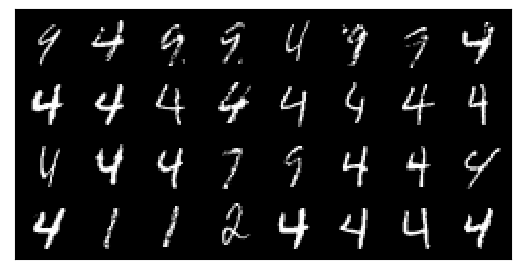 9 4 9 9 4 9 9 4
4 4 4 4 4 4 4 4
4 4 4 7 9 4 4 4
4 1 1 2 4 4 4 4